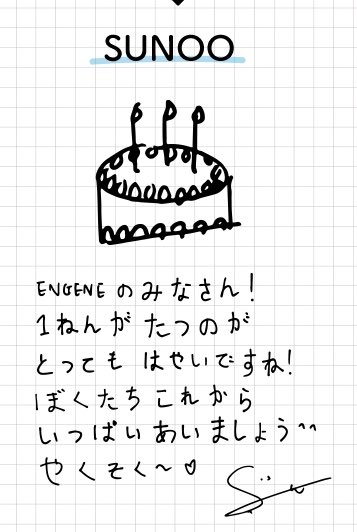 SUNOO
ENGENE のみなさん!
1ねんが たつのが
とっても はやいですね!
ぼくたち これから
いっぱい あいましょう^^
やくそく〜♡